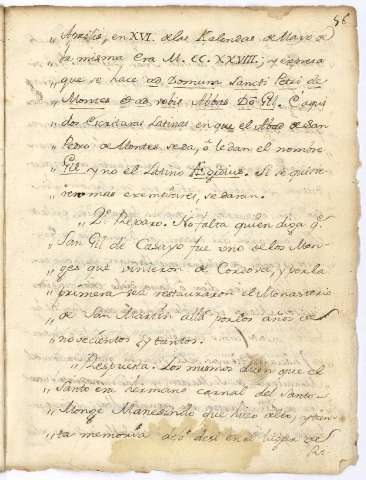 56
„ Aprilis, en XVI. de las Kalendas de Mayo de
„ la misma Era M. CC. XXVIII; y expresa
„ que se hace ad Domum Sancti Petri de
„ Montes et ad vobis Abbas Dõ Gil. Caqui
„ dos Escrituras Latinas en que el Abad de San
„ Pedro de Montes se da, o le dan el nombre
„ Gil, y no el Latino Ægidius. Si se quisie-
„ ren mas exemplares, se daran.
„ 2º Reparo. No falta quien diga q.e
„ San Gil de Casayo fue uno de los Mon-
„ ges que vinieron de Cordova, y por la
„ primera vez restauraron el Monasterio
„ de San Martin allá por los años de
„ novecientos y tantos.
„ Respuesta. Los mismos dicen que el
„ Santo era hermano carnal del Santo
„ Monge que hizo alto, y tan-
„ ta memoria dejó de si en el lugar de